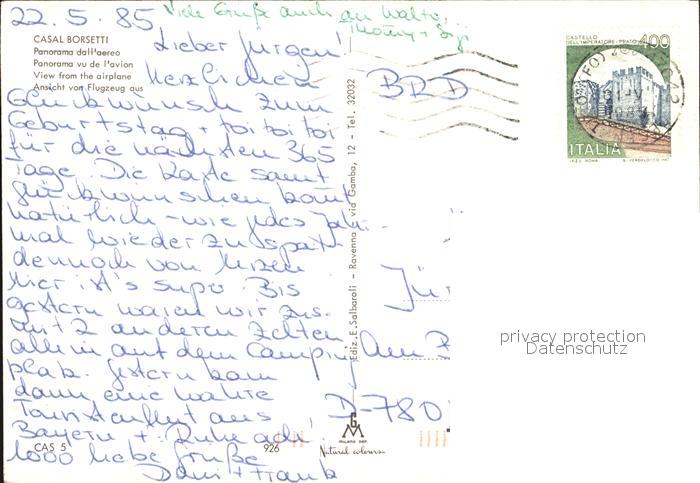 22.5.85
Viele Grüße auch an Walter,
CASAL BORSETTI
Panorama dall'aereo
Panorama vu de l'avion
View from the airplane
Ansicht von Flugzeug aus
Lieber Jürgen!
Herzlichen
Glückwunsch zum
Geburtstag + toi toi toi
für die nächsten 365
Tage. Die Karte samt
Glückwünschen kommt
natürlich - wie jedes Jahr -
mal wieder zu spät
dennoch von Herzen
hier ist's super. Bis
gestern waren wir zus.
mit 2 anderen Zelten
allein auf dem Camping
platz. Gestern kam
dann eine wahre
Touristenflut aus
Bayern + Ruhe ade!
1000 liebe Grüße
Dani + Frank
CAS 5
926
Ediz. E. Salbaroli - Ravenna - via Gamba, 12 - Tel. 32032
MILANO DEP.
Natural colours
BRD
Jü
Am
D-780
CASTELLO
DELL'IMPERATORE - PRATO
400
ITALIA
I.P.Z.S. ROMA
privacy protection
Datenschutz